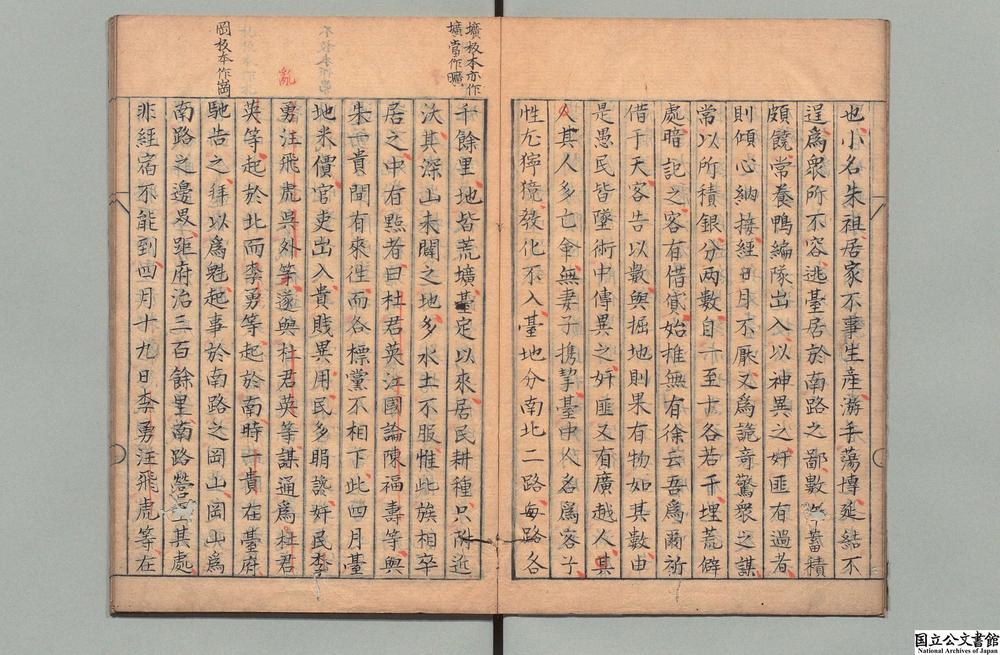 也小名朱祖居家不事生産游手蕩博延結不
逞爲衆所不容逃臺居於南路之鄙數歲蓄積
頗饒常養鴨編隊出入以神異之奸匪有過者
則傾心納接經日月不厭又爲詭奇驚衆之謀
常以所積銀分兩數自一至十各若干埋荒僻
處暗記之客有借貸始推無有徐云吾爲爾祈
借于天客告以數與掘地則果有物如其數由
是愚民皆墜術中傳異之奸匪又有廣越人其
人其人多亡命無妻子携挈臺中人名爲客子
性尤獰獍發化不入臺地分南北二路每路各
千餘里地皆荒壙臺定以來居民耕種只附近
汏其深山未闢之地多水土不服惟此族相卒
居之中有黠者曰杜君英江國論陳福壽等與
朱一貴間有來徃而各標黨不相下此四月臺
地米價官吏出入貴賤異用民多𦙄讒奸民李
勇汪飛虎吳外等遂與杜君英等謀通爲杜君
英等起於北而李勇等起於南時一貴在臺府
馳告之拜以爲魁起事於南路之岡山岡山爲
南路之邊界距府治三百餘里南路營主其處
非經宿不能到四月十九日李勇汪飛虎等在
壙板本亦作
壙當作曠
亂
岡板本作崗
国立公文書館
National Archives of Japan